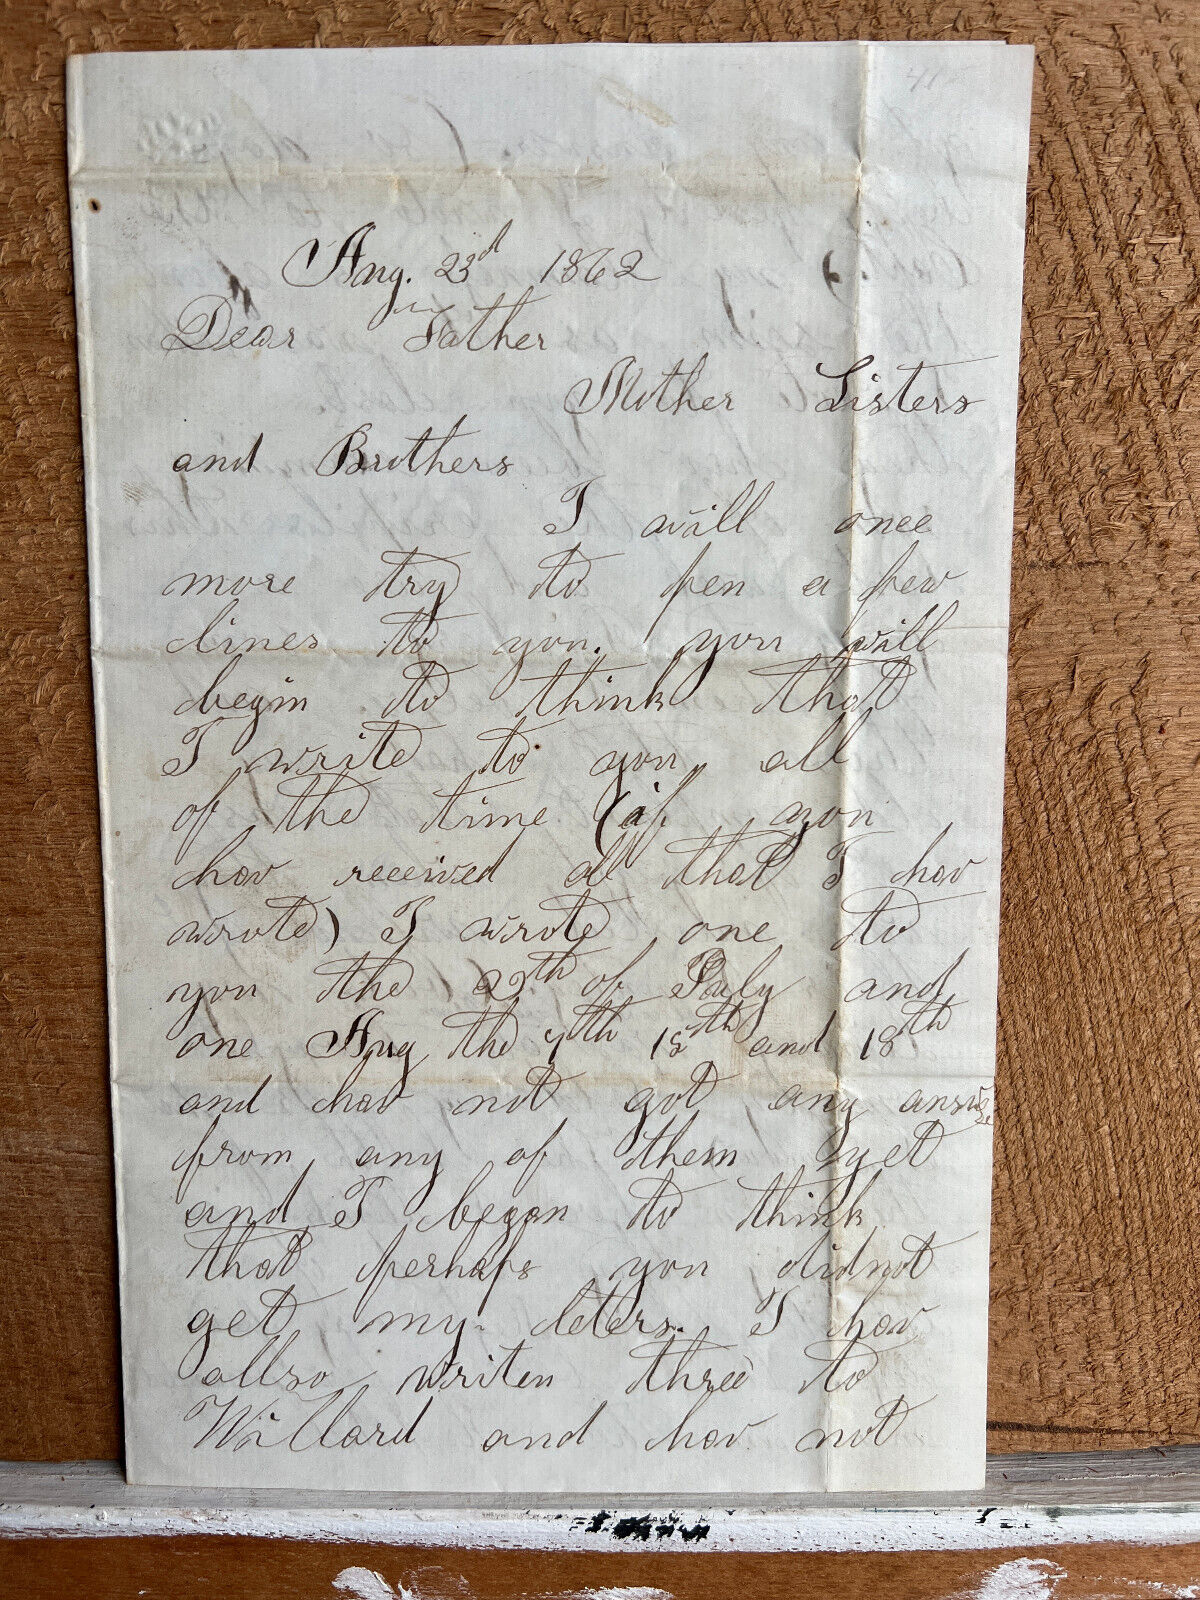 Aug. 23d 1862
Dear Father
Mother Sisters
and Brothers
I will once
more try to pen a few
lines to you. you will
begin to think that
I write to you all
of the time (if you
hav received all that I hav
wrote) I wrote one to
you the 29th of July and
one Aug the 7th 15th and 18th
and hav not got any answe
from any of them yet
and I began to think
that perhaps you didnot
get my leters. I hav
allso writen three to
Willard and hav not